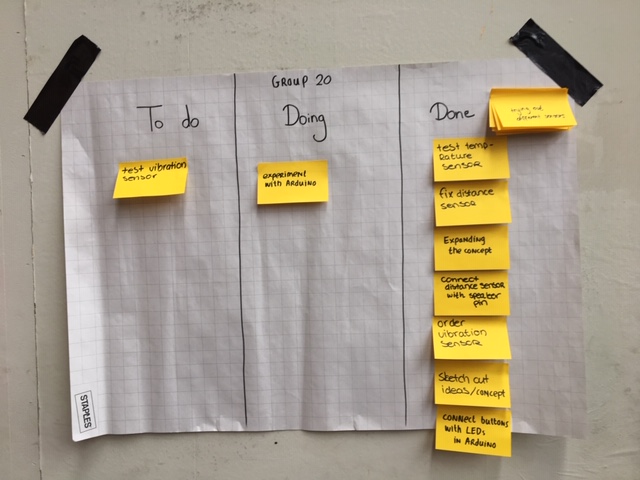 GROUP 20
To do
Doing
Done
test vibration
sensor
experiment
with ARDUINO
trying out
different sensors
test temp-
erature
sensor
fix distance
sensor
Expanding
the concept
connect
distance sensor
with speaker
pin
order
vibration
sensor
Sketch out
ideas/concept
connect buttons
with LEDs
in ARDUINO
STAPLES